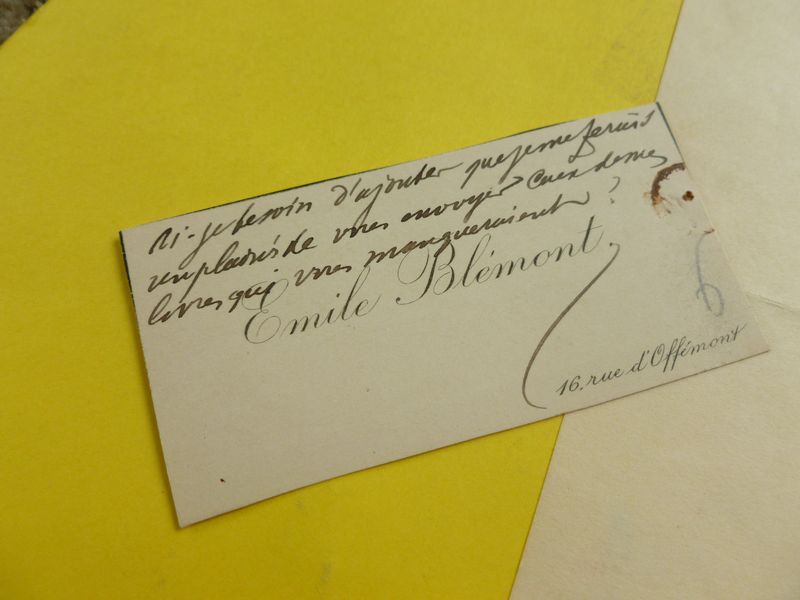 Ai-je besoin d'ajouter que je me ferais
un plaisir de vous envoyer ceux de mes
livres qui vous manqueraient ?
Emile Blémont
16, rue d'Offémont